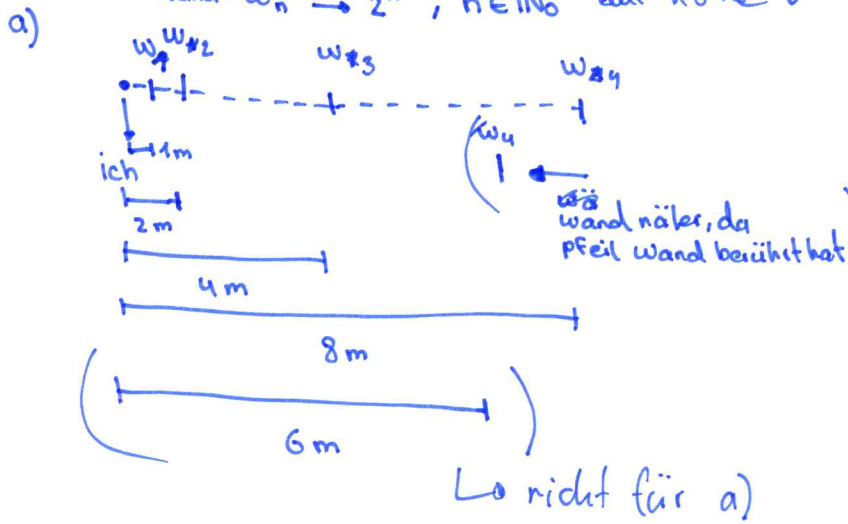 wn → 2ⁿ, n ∈ ℕ₀
a)
w1 w2 w3 w4
1m
ich
w4
2m
wand näher, da
pfeil wand berührt hat
4m
8m
6m
↳ nicht für a)